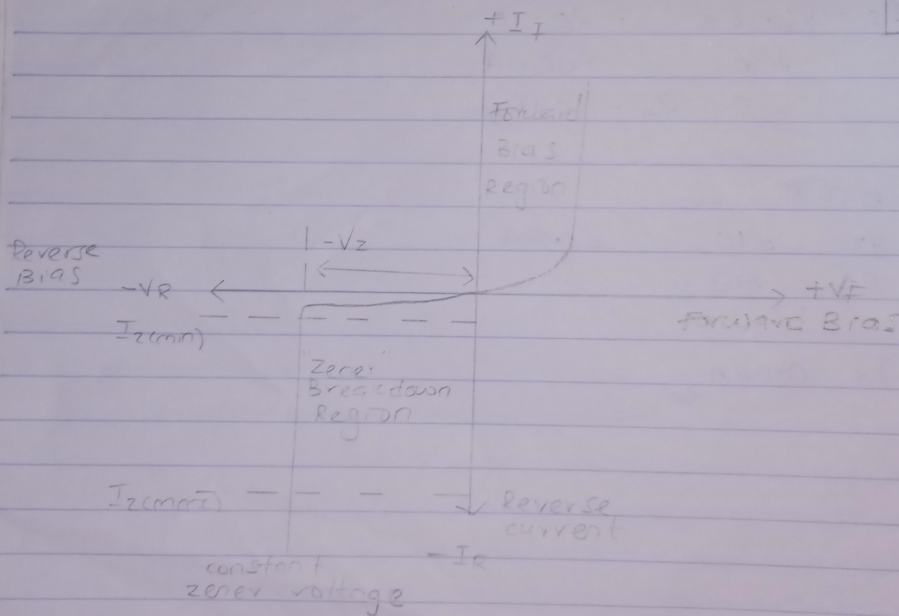 + I
Forward
Bias
Region
Reverse
Bias
-Vz
-VR
+VF
Forward Bias
Iz(min)
Zener
Breakdown
Region
Iz(max)
Reverse
current
-IR
constant
zener voltage